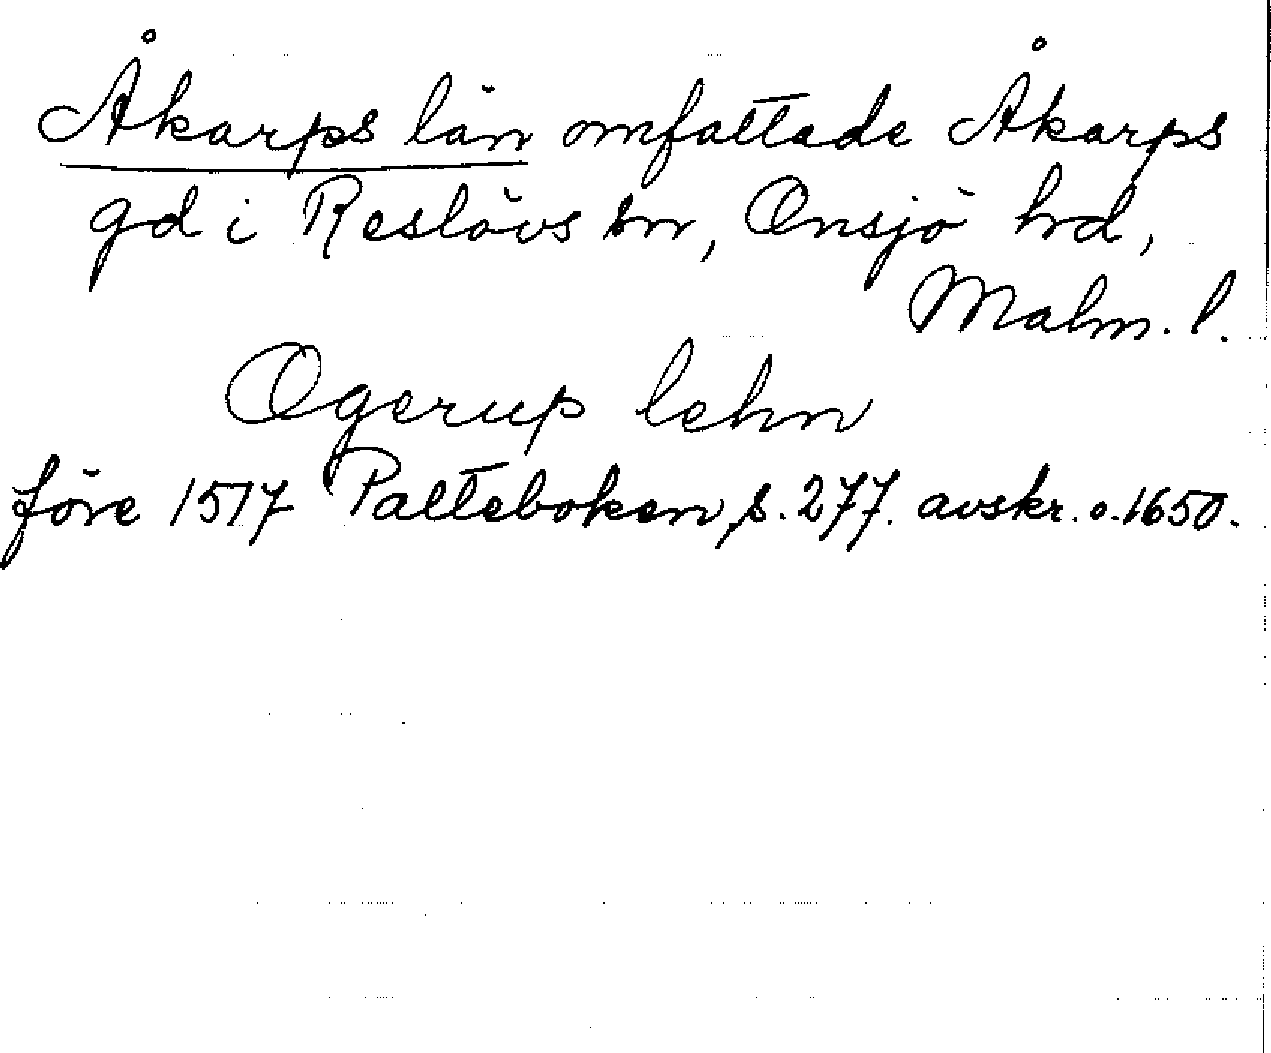 Åkarps län omfattade Åkarps
gd i Reslövs sn, Onsjö hd,
Malm. l.
Ogerup lehn
före 1517 Palteboken, s. 277. avskr. o. 1650.